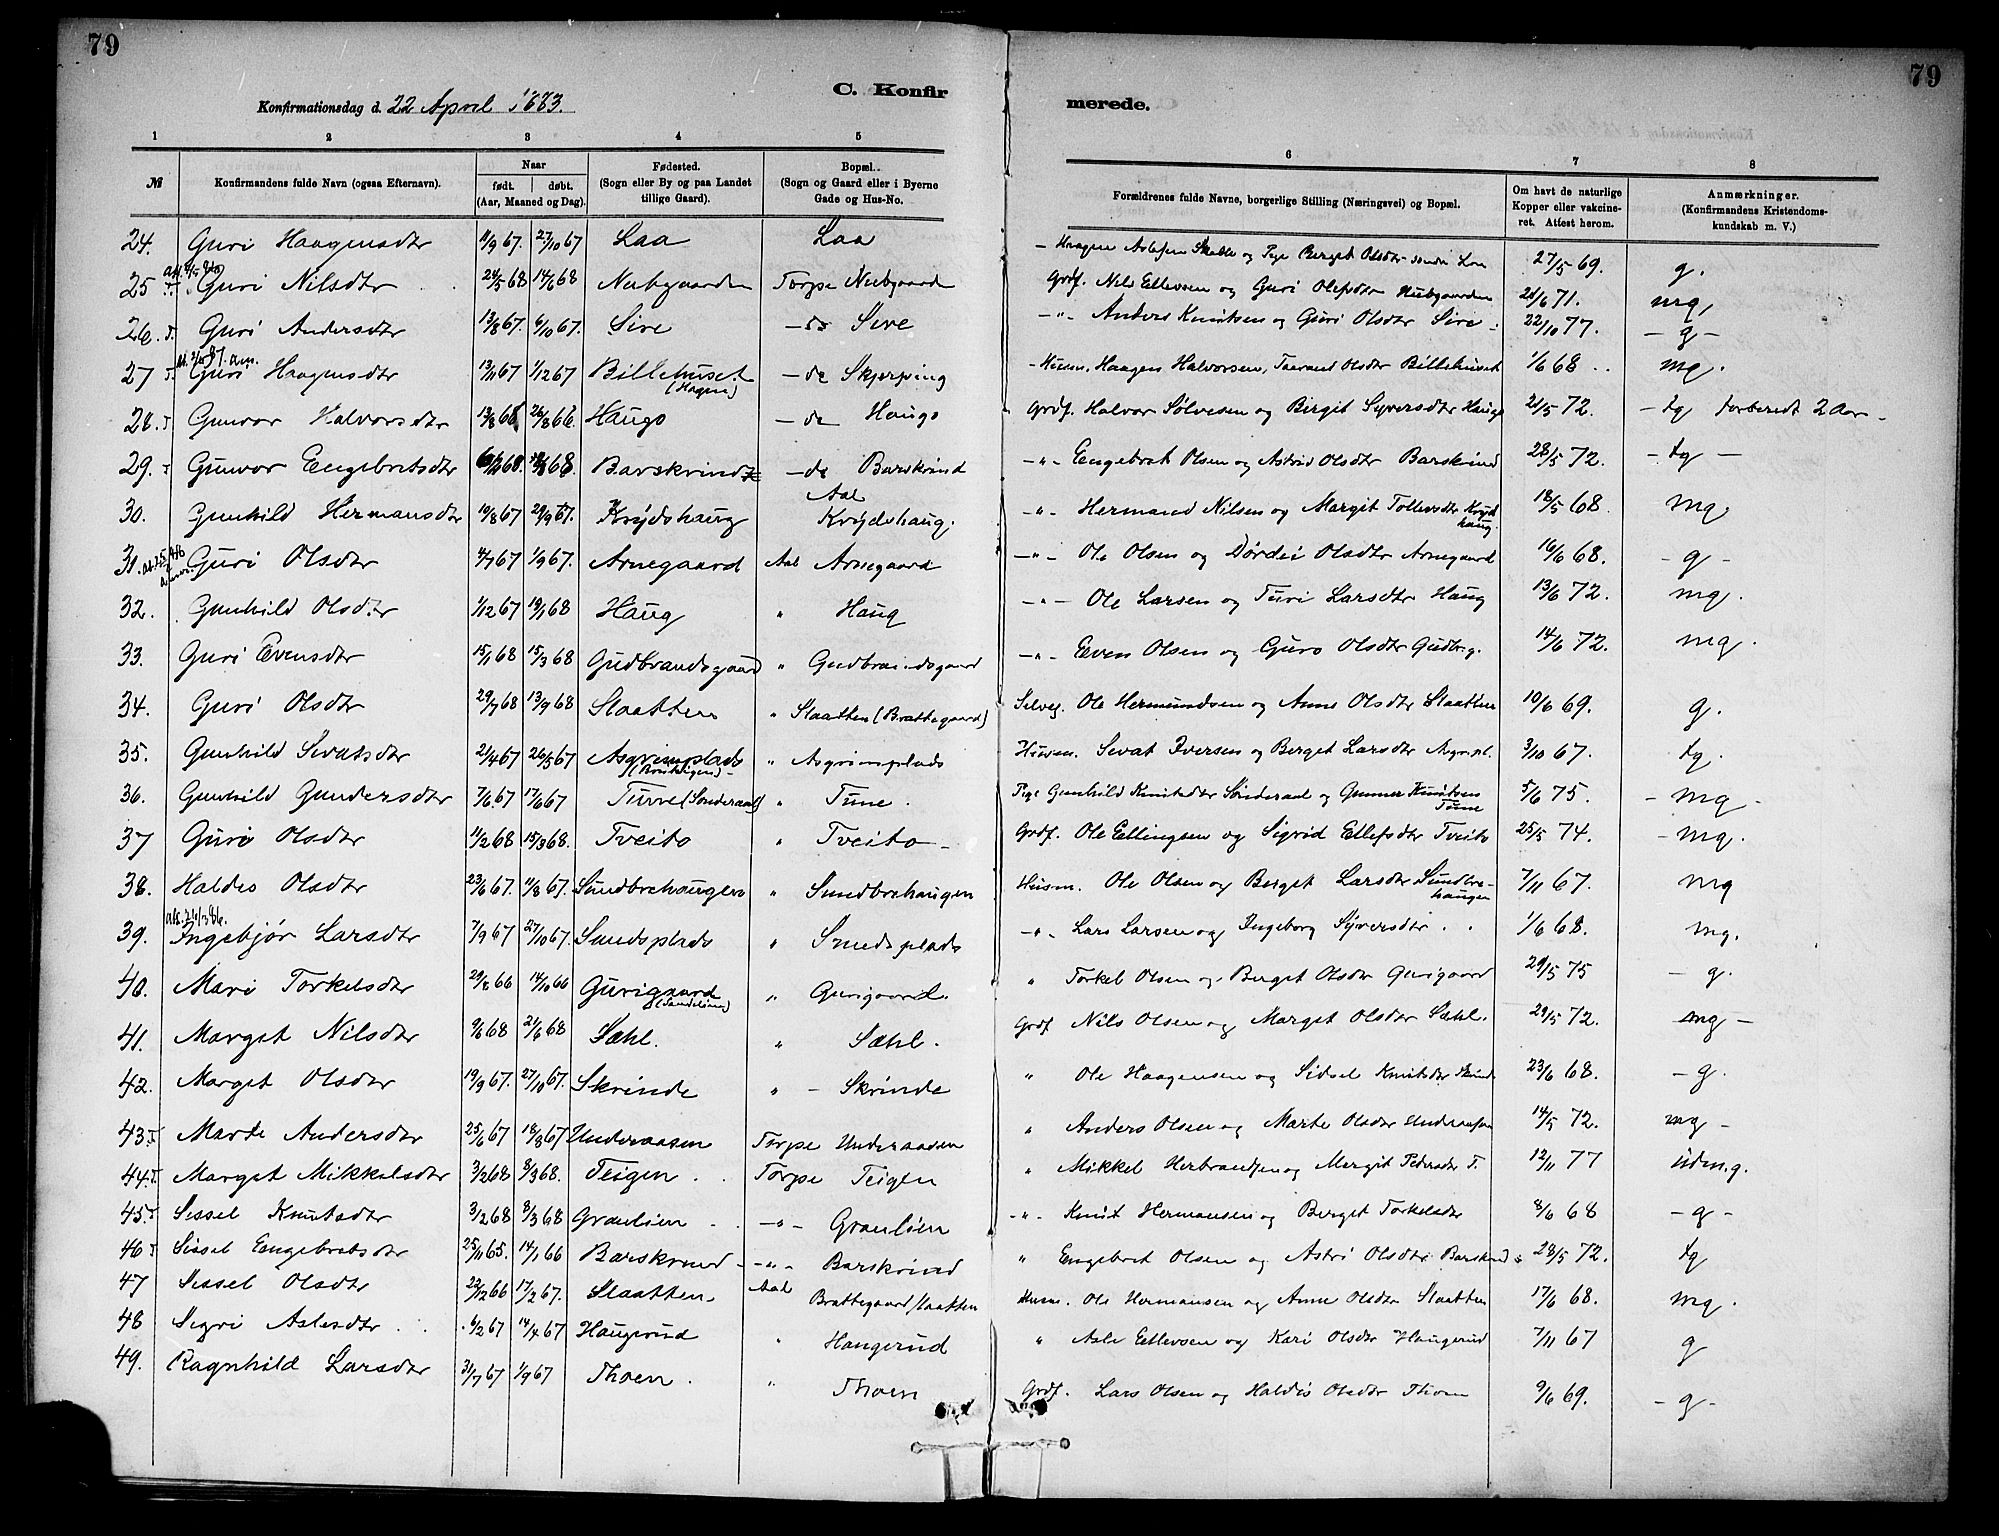 79
79
C. Konfir
merede.
Konfirmationsdag d. 22 April 1883.
1 2 3 4 5 6 7 8
№
Konfirmandens fulde Navn (ogsaa Efternavn).
Naar
født. døbt.
(Aar, Maaned og Dag).
Fødested.
(Sogn eller By og paa Landet
tillige Gaard).
Bopæl.
(Sogn og Gaard eller i Byerne
Gade og Hus-No.
Forældrenes fulde Navne, borgerlige Stilling (Næringsvei) og Bopæl.
Om havt de naturlige
Kopper eller vakcine-
ret. Attest herom.
Anmærkninger.
(Konfirmandens Kristendoms-
kundskab m. V.)
24. Guri Haagensdtr 11/9 67. 27/10 67 Laa Laa Haagen Aslesen og Pige Berget Olsdtr 27/5 69. g.
25 Guri Nilsdtr 24/5 68 14/6 68 Nubgaarden Torpe Nubgaarden Grdf. Nils Ellevsen og Guri Olefsdtr Nubgaarden 21/6 71. mg,
26. Guri Andersdtr 13/8 67. 6/10 67. Sire - do Sire - " - Anders Knutsen og Guri Olsdtr Sire 22/10 77. - g -
27 Guri Haagensdtr 13/11 67 1/12 67 Billehuset (Hagen) - do Skjerping Husm. Haagen Halvorsen, Taarand Olsdtr Billehuset 1/6 68 mg.
28. Gunvor Halvorsdtr 13/8 66 26/8 66. Haugo - do Haugo Grdf. Halvor Sølvesen og Birgit Syversdtr Haugo 21/5 72. - tg forberedt 2 Aar -
29. Gunvor Engebretsdtr Barskrind - do Barskrind - " - Engebret Olsen og Astrid Olsdtr Barskrind 28/5 72. - tg -
30. Gunhild Hermansdtr 19/8 67 29/9 67. Krydshaug Aal Krydshaug. - " - Hermand Nilsen og Margit Tollevsdtr Krydshaug. 18/5 68. mg.
31. Guri Olsdtr 4/7 67 1/9 67. Arnegaard Aal Arnegaard - " - Ole Olsen og Dørdei Olsdtr Arnegaard 16/6 68. - g -
32. Gunhild Olsdtr 1/12 67 19/1 68 Haug " Haug - " - Ole Larsen og Turi Larsdtr Haug 13/6 72. mg.
33. Guri Evensdtr 15/1 68 15/3 68 Gudbrandsgaard " Gudbrandsgaard - " - Even Olsen og Guro Olsdtr Gudbr.g. 14/6 72. mg.
34. Guri Olsdtr 29/7 68 13/9 68 Slaatten " Slaatten (Brattegaard) Selvej. Ole Hermundsen og Anne Olsdtr Slaatten 10/6 69. g.
35. Gunhild Sevatsdtr 21/4 67 26/5 67 Asgrimsplads " Asgrimsplads Husm. Sevat Iversen og Berget Larsdtr Asgr.pl. 3/10 67. tg.
36. Gunhild Gundersdtr 7/6 67 17/6 67 Turre (Sønderaal) " Tune. Pige Gunhild Knutsdtr Sønderaal og Gunner Knutsen Tune 5/6 75. - mg -
37 Guri Olsdtr 11/2 68 15/3 68. Tveito " Tveito - Grdf. Ole Ellingsen og Sigrid Ellefsdtr Tveito 25/5 74. - mg.
38. Haldis Olsdtr 23/6 67. 11/8 67. Sundbrehaugen " Sundbrehaugen Husm. Ole Olsen og Berget Larsdtr Sundbre-haugen 7/11 67. mg
39. Ingebjør Larsdtr 7/9 67 27/10 67. Sundsplads " Sundsplads - " - Lars Larsen og Ingeborg Syversdtr 1/6 68. mg.
40. Mari Torkelsdtr 29/8 66 14/10 66 Gurigaard " Gurigaard. " Torkel Olsen og Berget Olsdtr Gurigaard 29/5 75 - g.
41. Marget Nilsdtr 9/6 68 21/6 68 Sæhl. " Sæhl. Grdf Nils Olsen og Marget Olsdtr Sæhl. 29/5 72. mg -
42. Marget Olsdtr 19/9 67. 27/10 67. Skrinde " - Skrinde " Ole Haagensen og Sidsel Knutsdtr Skrinde 23/6 68. - g.
43 Marte Andersdtr 25/6 67 18/8 67 Underaasen Torpe Underaasen " Anders Olsen og Marte Olsdtr Underaasen 14/5 72. mg -
44 Marget Mikkelsdtr 3/2 68 8/3 68. Teigen Torpe Teigen " Mikkel Herbrandsen og Mergit Pedersdtr T. 12/11 77 udm.g.
45. Sissel Knutsdtr 3/2 68 8/3 68 Granlien - " - Granlien - " - Knut Hermansen og Berget Torkelsdtr 8/6 68 - g -
46 Sissel Engebretsdtr 25/11 65. 14/1 66 Barskrind - " - Barskrind " Engebret Olsen og Astri Olsdtr Barskrind 28/5 72. tg
47 Sissel Olsdtr 22/12 66 17/2 67. Slaatten. Aal Brattegaard/slaatten Husm. Ole Hermansen og Anne Olsdtr Slaatten 17/6 68. mg.
48 Segri Aslesdtr 6/2 67 14/4 67 Haugerud " Haugerud " Asle Ellevsen og Kari Olsdtr Haugerud 7/11 67 g
49. Ragnhild Larsdtr 31/7 67 1/9 67 Thoen. " Thoen Grdf. Lars Olsen og Haldis Olsdtr Thoen 9/6 69. - g -